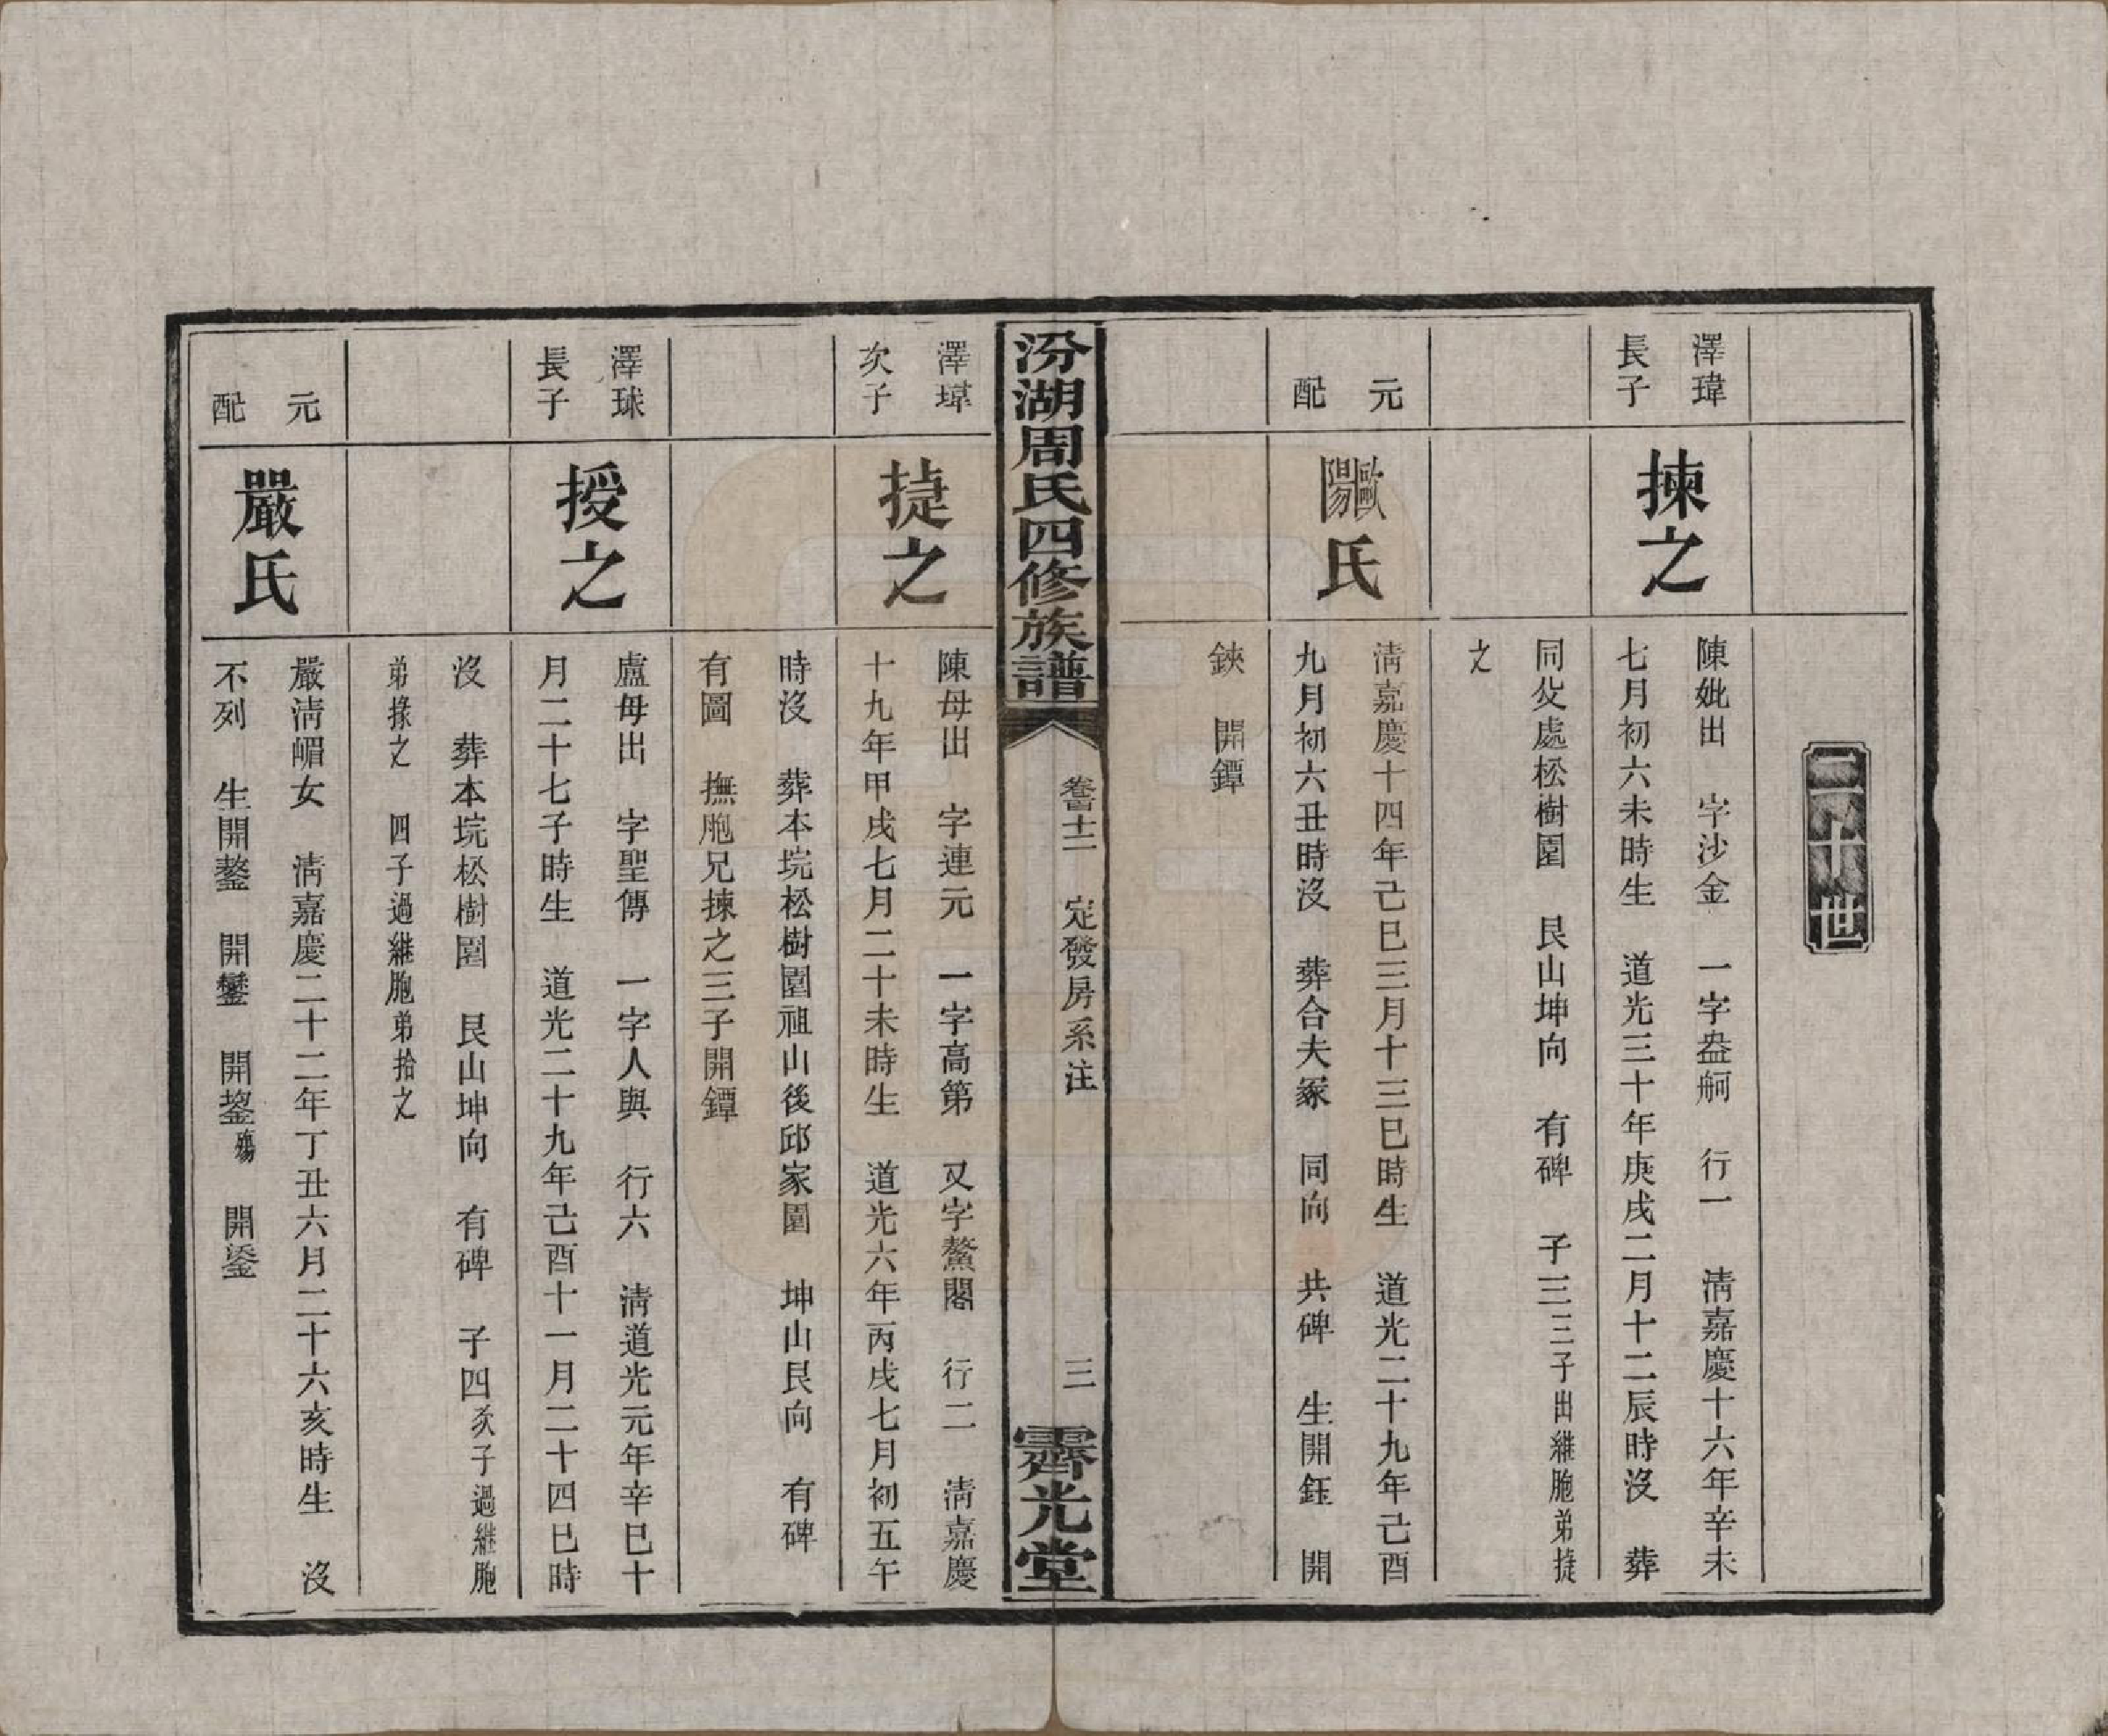 二十世
澤瑋
長子
揀之
陳妣出　字沙金　一字盎舸　行一　清嘉慶十六年辛未
七月初六未時生　道光三十年庚戌二月十二辰時沒　葬
同父處松樹園　艮山坤向　有碑　子三三子出繼胞弟捷
之
元
配
歐陽氏
清嘉慶十四年己巳三月十三巳時生　道光二十九年己酉
九月初六丑時沒　葬合夫冢　同向　共碑　生開鈺　開
鋏　開鐔
汾湖周氏四修族譜
卷十二　定發房系注
三
霽光堂
澤瑋
次子
捷之
陳母出　字連元　一字高第　又字鰲閣　行二　清嘉慶
十九年甲戌七月二十未時生　道光六年丙戌七月初五午
時沒　葬本垸松樹園祖山後邱家園　坤山艮向　有碑
有圖　撫胞兄揀之三子開鐔
澤球
長子
授之
盧母出　字聖傳　一字人與　行六　清道光元年辛巳十
月二十七子時生　道光二十九年己酉十一月二十四巳時
沒　葬本垸松樹園　艮山坤向　有碑　子四次子過繼胞
弟掾之　四子過繼胞弟拾之
元
配
嚴氏
嚴清嵋女　清嘉慶二十二年丁丑六月二十六亥時生　沒
不列　生開鏊　開鑾　開鋆殤　開鋈